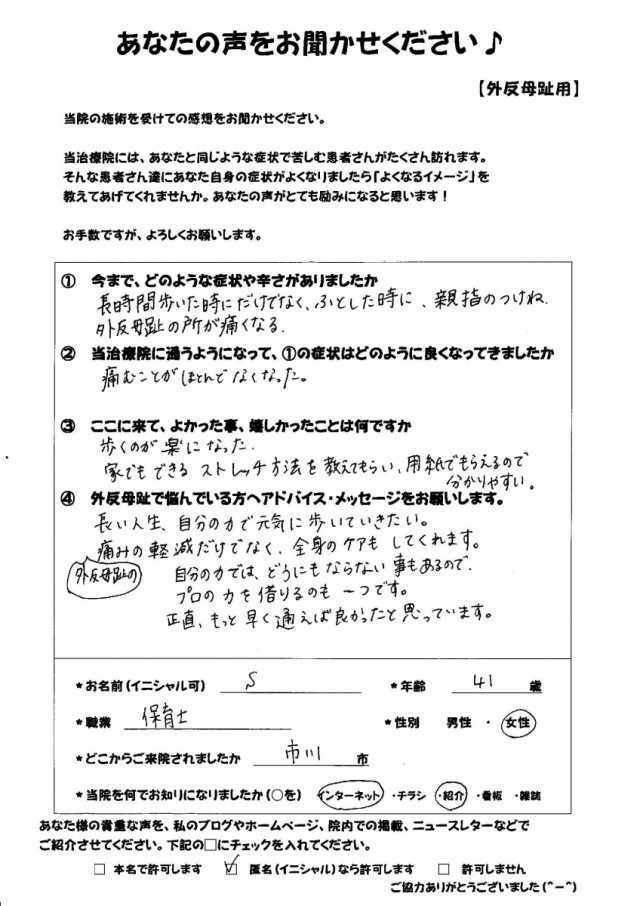 あなたの声をお聞かせください♪
【外反母趾用】
当院の施術を受けての感想をお聞かせください。
当治療院には、あなたと同じような症状で苦しむ患者さんがたくさん訪れます。
そんな患者さん達にあなた自身の症状がよくなりましたら「よくなるイメージ」を
教えてあげてくれませんか。あなたの声がとても励みになると思います！
お手数ですが、よろしくお願いします。
① 今まで、どのような症状や辛さがありましたか
長時間歩いた時にだけでなく、ふとした時に、親指のつけね、
外反母趾の所が痛くなる。
② 当治療院に通うようになって、①の症状はどのように良くなってきましたか
痛むことがほとんどなくなった。
③ ここに来て、よかった事、嬉しかったことは何ですか
歩くのが楽になった。
家でもできるストレッチ方法を教えてもらい、用紙でもらえるので
分かりやすい。
④ 外反母趾で悩んでいる方へアドバイス・メッセージをお願いします。
長い人生、自分の力で元気に歩いていきたい。
外反母趾の痛みの軽減だけでなく、全身のケアもしてくれます。
自分の力では、どうにもならない事もあるので、
プロの力を借りるのも一つです。
正直、もっと早く通えば良かったと思っています。
*お名前（イニシャル可） S *年齢 41 歳
*職業 保育士 *性別 男性 ・ 女性
*どこからご来院されましたか 市川 市
*当院を何でお知りになりましたか（○を） インターネット ・チラシ ・紹介 ・看板 ・雑誌
あなた様の貴重な声を、私のブログやホームページ、院内での掲載、ニュースレターなどで
ご紹介させてください。下記の□にチェックを入れてください。
□ 本名で許可します ☑ 匿名（イニシャル）なら許可します □ 許可しません
ご協力ありがとうございました(^ー^)